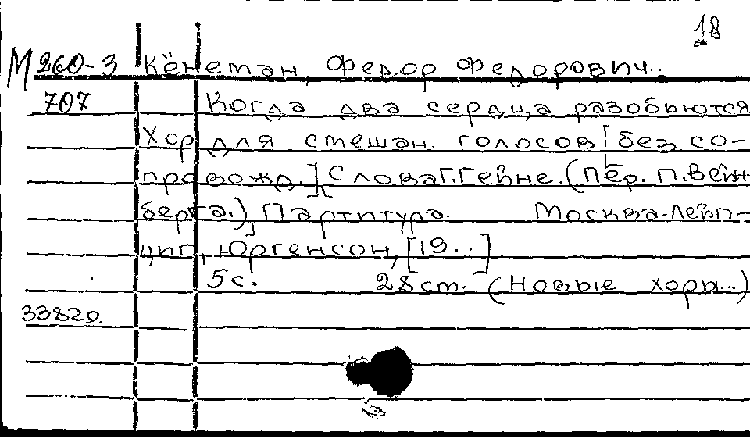 18
М 260-3 Кёнеман, Федор Федорович.
707 Когда два сердца разобьются
Хор для смешан. голосов [без со-
провожд.] Слова Г. Гейне. (Пер. П. Вейн-
берга.) Партитура. Москва-Лейп-
циг, Юргенсон, [19..]
5 с. 28 cm. (Новые хоры..)
33820.